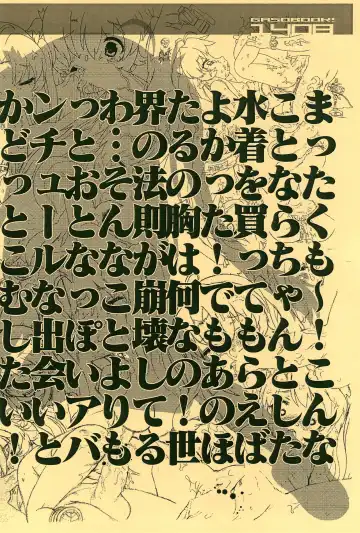 GASOBOOK!
1408
まったくも〜！こんな
ことならちゃんとした
水着を買ってもらえば
よかった！でもあのほ
たるの胸は何なの！世
界の法則が崩壊してる
わ…そんなことよりも
っとおとなっぽいアバ
ンチュールな出会いと
かどっとこむしたい！